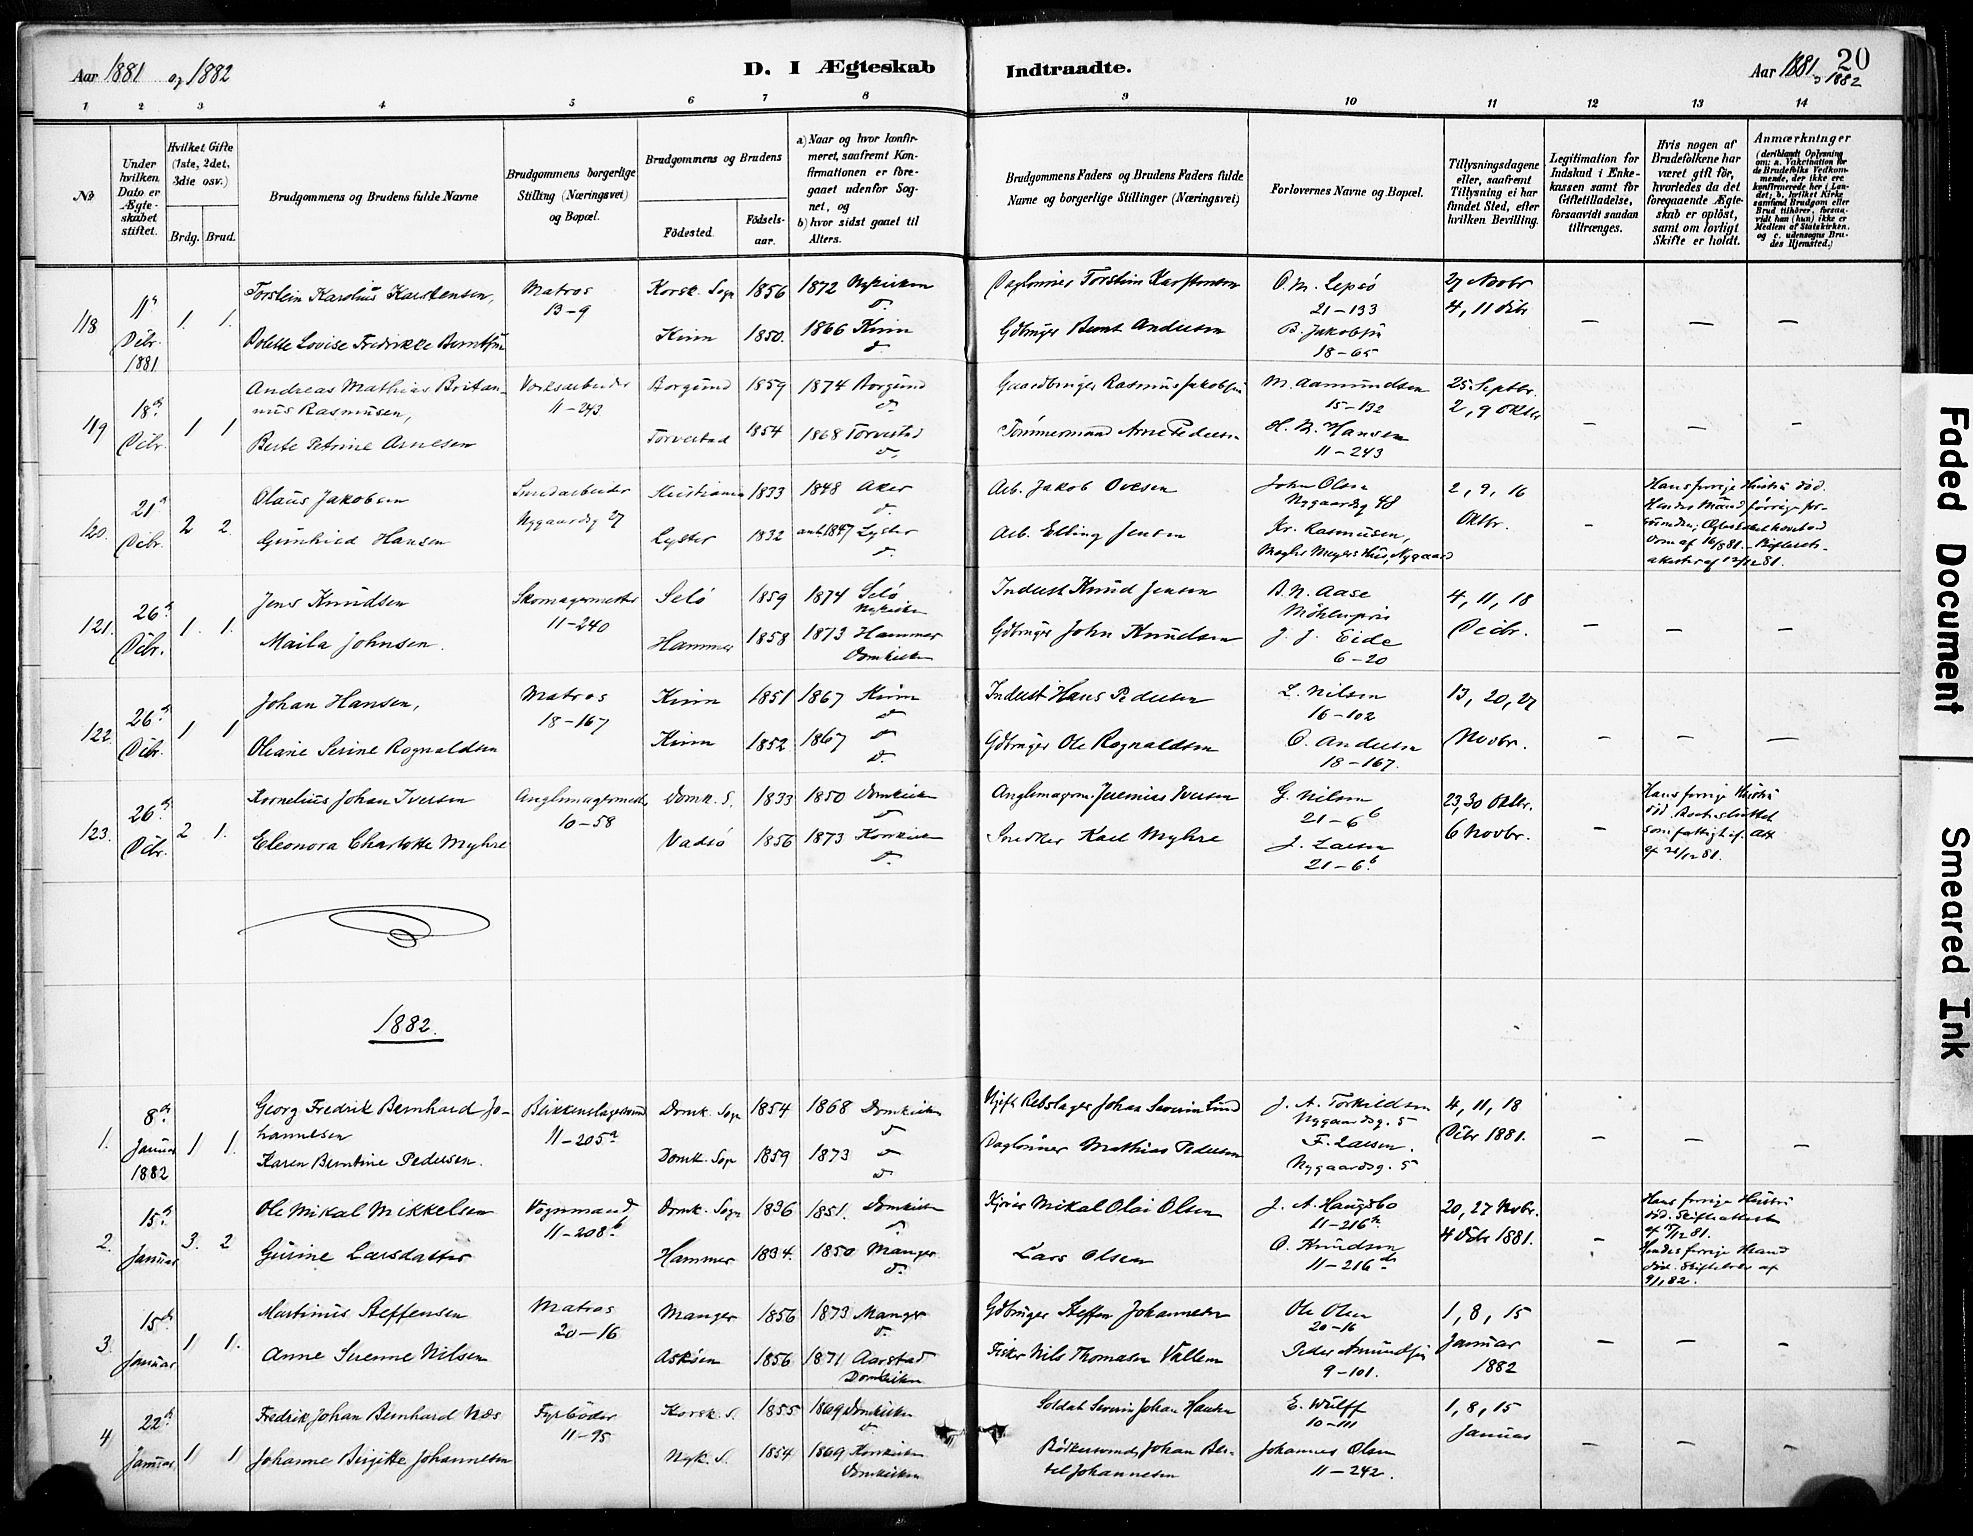 Aar 1881 og 1882
D. I Ægteskab Indtraadte.
Aar 1881 og 1882
20
1 2 3 4 5 6 7 8 9 10 11 12 13 14
No
Under hvilken Dato er Ægteskabet stiftet.
Hvilket Gifte (1ste, 2det, 3die osv.)
Brdg. Brud.
Brudgommens og Brudens fulde Navne
Brudgommens borgerlige Stilling (Næringsvei) og Bopæl.
Brudgommens og Brudens
Fødested.
Fødselsaar.
a) Naar og hvor konfirmeret, saafremt Konfirmationen er foregaaet udenfor Sognet, og
b) hvor sidst gaaet til Alters.
Brudgommens Faders og Brudens Faders fulde Navne og borgerlige Stillinger (Næringsvei)
Forlovernes Navne og Bopæl.
Tillysningsdagene eller, saafremt Tillysning ei har fundet Sted, efter hvilken Bevilling.
Legitimation for Indskud i Enkekassen samt for Giftetilladelse, forsaavidt saadan tiltrænges.
Hvis nogen af Brudefolkene har været gift før, hvorledes da det foregaaende Ægteskab er opløst, samt om lovligt Skifte er holdt.
Anmærkninger
(deriblandt Oplysning om: a. Vakcination for de Brudefolks Vedkommende, der ikke ere konfirmerede her i Landet; b. hvilket Kirkesamfund Brudgom eller Brud tilhører, forsaavidt han (hun) ikke er Medlem af Statskirken, og c. udensogns Brudes Hjemsted.)
118 11te Dcbr. 1881 1. 1.
Torstein Karolius Karstensen, Matros 13-9 Korsk. Sogn 1856 1872 Nykirken
Daglønner Torstein Karstensen O. M. Lepsö 21-133 27 Novbr 4, 11 Dcbr
Bolette Lovise Fredrikke Berntsen Kinn 1850. 1866 Kinn
Gdbruger Bernt Andersen B. Jakobsen 18-65
119 18de Dcbr. 1 1
Andreas Mathias Britannus Rasmusen, Værksarbeider 11-243 Borgund 1859 1874 Borgund
Gaardbruger Rasmus Jakobsen M. Aamundsen 15-132 25. Septbr. 2, 9 Oktbr
Berte Petrine Arnesen Torvestad 1854 1868 Torvestad
Tømmermand Arne Pedersen H. M. Hansen 11-243
120. 21de Dcbr. 2 2.
Olaus Jakobsen Smedarbeider Nygaardsg 27 Kristiania 1833 1848 Aker
Arb. Jakob Ovesen John Olsen Nygaardsg 48 2, 9, 16 Oktbr.
Hans forrige Hustru død.
Gunhild Hansen Lyster 1832 1847 Lyster
Arb. Elling Jensen Kr. Rasmusen,
121. 26de Dcbr. 1. 1.
Jens Knudsen Skomagermester 11-240 Selö 1859 1874 Selö Nykirken
Inderst Knud Jensen B. N. Aase 4, 11, 18 Decbr.
Maila Johnsen. Hammer 1858 1873 Hammer Domkirken
Gdbruger John Knudsen J. J. Eide 6-20
122. 26de Dcbr. 1 1
Johan Hansen, Matros 18-167 Kinn 1851 1867 Kinn
Inderst Hans Pedersen L. Nilsen 16-102 13, 20, 27 Novbr.
Oleane Serine Rognaldsen Kinn 1852 1867
Gdbruger Ole Rognaldsen O. Andersen 18-167.
123. 26de Dcbr. 2 1.
Kornelius Johan Iversen Anglemagermester 10-58 Domk. S. 1833 1850 Domkirken
Anglemagerm. Jeremias Iversen G. Nilsen 21-6b 23, 30 Oktbr. 6 Novbr.
Hans forrige Hustru død.
Eleonora Charlotte Myhre Vadsö 1856 1873 Korskirken
Snedker Karl Myhre J. Larsen 21-6b.
1882.
1. 8de Januar 1882 1 1.
Georg Fredrik Bernhard Johannesen Blikkenslagersvend 11-205a Domk. Sogn 1854 1868 Domkirken
Ugift Rebslager Johan Severin Lund J. A. Torkildsen Nygaardsg. 5 4, 11, 18 Dcbr 1881.
Karen Berntine Pedersen. Domk. Sogn 1859 1873
Daglønner Mathias Pedersen F. Larsen. Nygaardsg. 5
2. 15de Januar 3. 2
Ole Mikal Mikkelsen Vognmand 11-208b Domk. Sogn 1836 1851. Domkirken
Kjører Mikal Olai Olsen J. A. Haugsbo 11-216 20, 27 Novbr. 4 Dcbr 1881.
Hans forrige Hustru død. Skifteattest af 7/12 81.
Gurine Larsdatter Hammer 1834. 1850 Manger
Lars Olsen O. Knudsen 11-216
Hendes forrige Mand død.
3. 15de Januar 1 1.
Martinus Steffensen Matros 20-16 Manger 1856 1873 Manger
Gdbruger Steffen Johannesen Ole Olsen 20-16 1, 8, 15 Januar 1882
Anne Serenne Nilsen Askøen 1856 1871 Aarstad Domkirken
Fisker Nils Thomasen Vallem Peder Amundsen 9-101.
4 22de Januar 1 1
Fredrik Johan Bernhard Næs Fyrbøder 11-95 Korsk. S. 1855 1869 Domkirken
Soldat Severin Johan Hansen E. Wulff 10-111 1, 8, 15 Januar
Johanne Birgitte Johannesen Nyk. S. 1854 1869 Korskirken Domkirken
Bødkersvend Johan Bertel Johannesen Johannes Olsen 11-242.
Faded Document
Smeared Ink